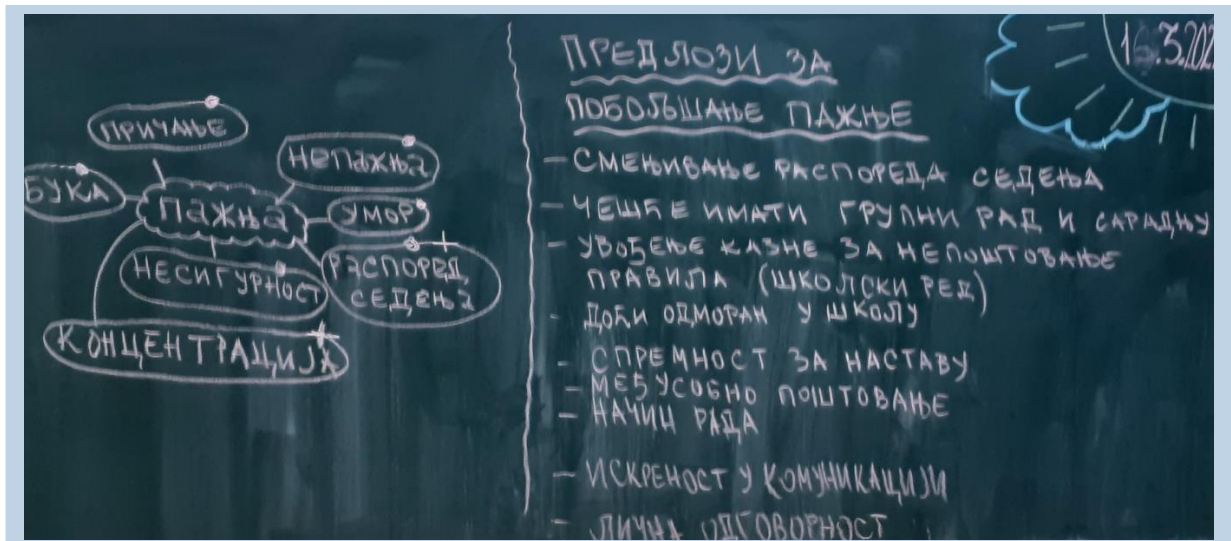 ПРИЧАЊЕ
НЕПАЖЊА
БУКА
ПАЖЊА
УМОР
НЕСИГУРНОСТ
РАСПОРЕД
СЕДЕЊА
КОНЦЕНТРАЦИЈА
ПРЕДЛОЗИ ЗА
ПОБОЉШАЊЕ ПАЖЊЕ
- СМЕЊИВАЊЕ РАСПОРЕДА СЕДЕЊА
- ЧЕШЋЕ ИМАТИ ГРУПНИ РАД И САРАДЊУ
- УВОЂЕЊЕ КАЗНЕ ЗА НЕПОШТОВАЊЕ
ПРАВИЛА (ШКОЛСКИ РЕД)
- ДОЋИ ОДМОРАН У ШКОЛУ
- СПРЕМНОСТ ЗА НАСТАВУ
- МЕЂУСОБНО ПОШТОВАЊЕ
- НАЧИН РАДА
- ИСКРЕНОСТ У КОМУНИКАЦИЈИ
- ЛИЧНА ОДГОВОРНОСТ